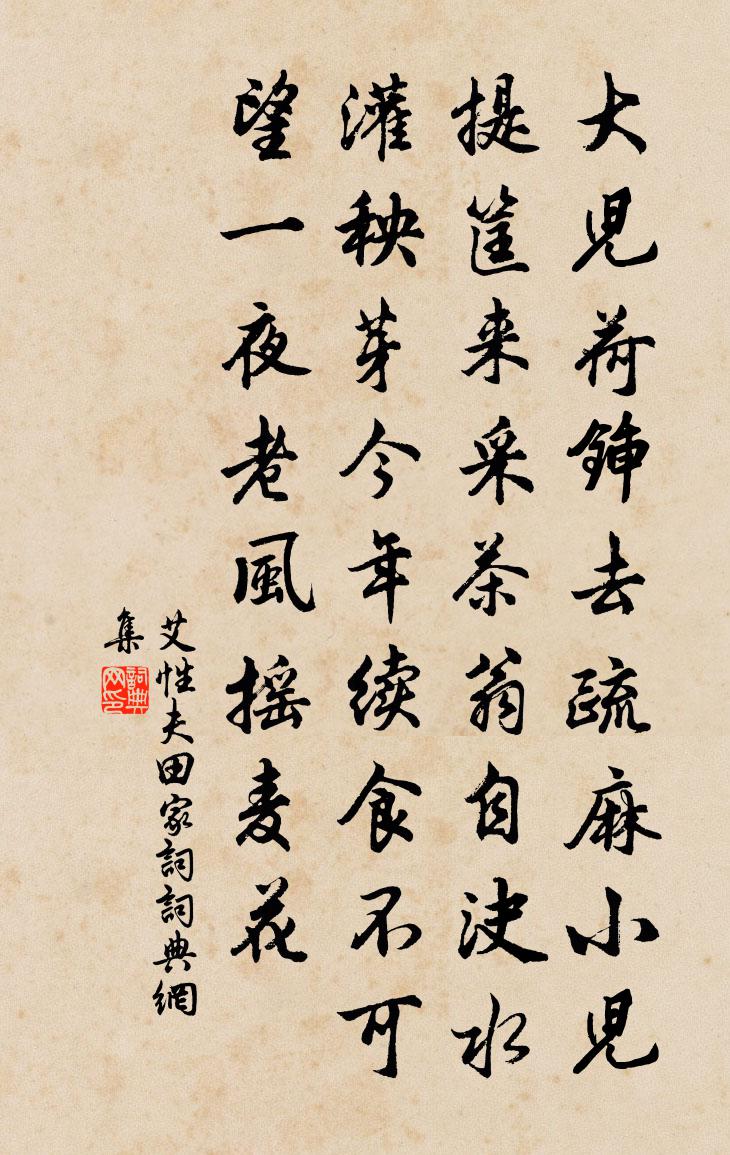 大児荷鍤去疏麻小児
提筐来采茶翁自决水
灌秧芽今年续食不可
望一夜老風摇麦花
艾性夫田家詞詞典網
集
詞典
网印